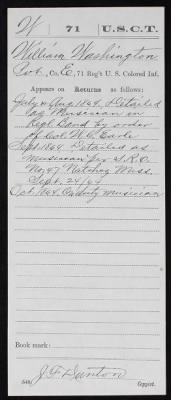 W 71 U.S.C.T.
William Washington
Pvt., Co. E, 71 Reg't U. S. Colored Inf.
Appears on Returns as follows:
July & Aug 1864, Detailed
as Musician in
Regl Band by order
of Col. W. C. Earle
Sept. 1864. Detailed as
musician per S.R.O.
No. 47 Natchez Miss.
Sept. 24/64
Oct. 1864. On duty musician
Book mark:
(546)
J. F. Denton
Copyist.